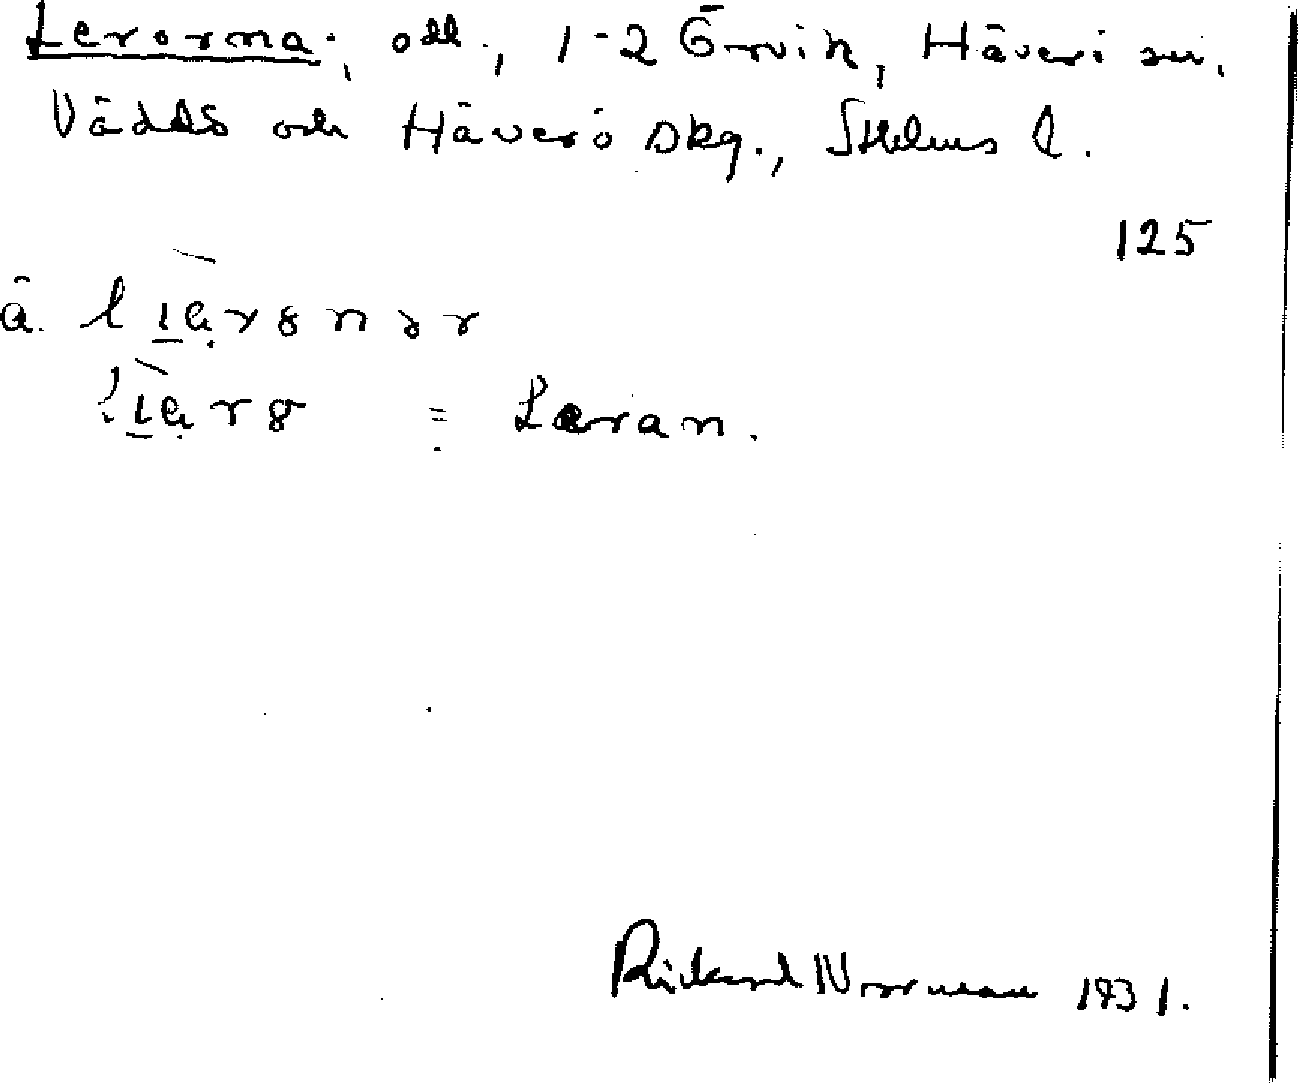 Lerorna; odl., 1-2 Grovik, Häverö sn,
Väddö och Häverö skg., Sthlms l.
125
= Leran.
Rickard Norrman 1931.